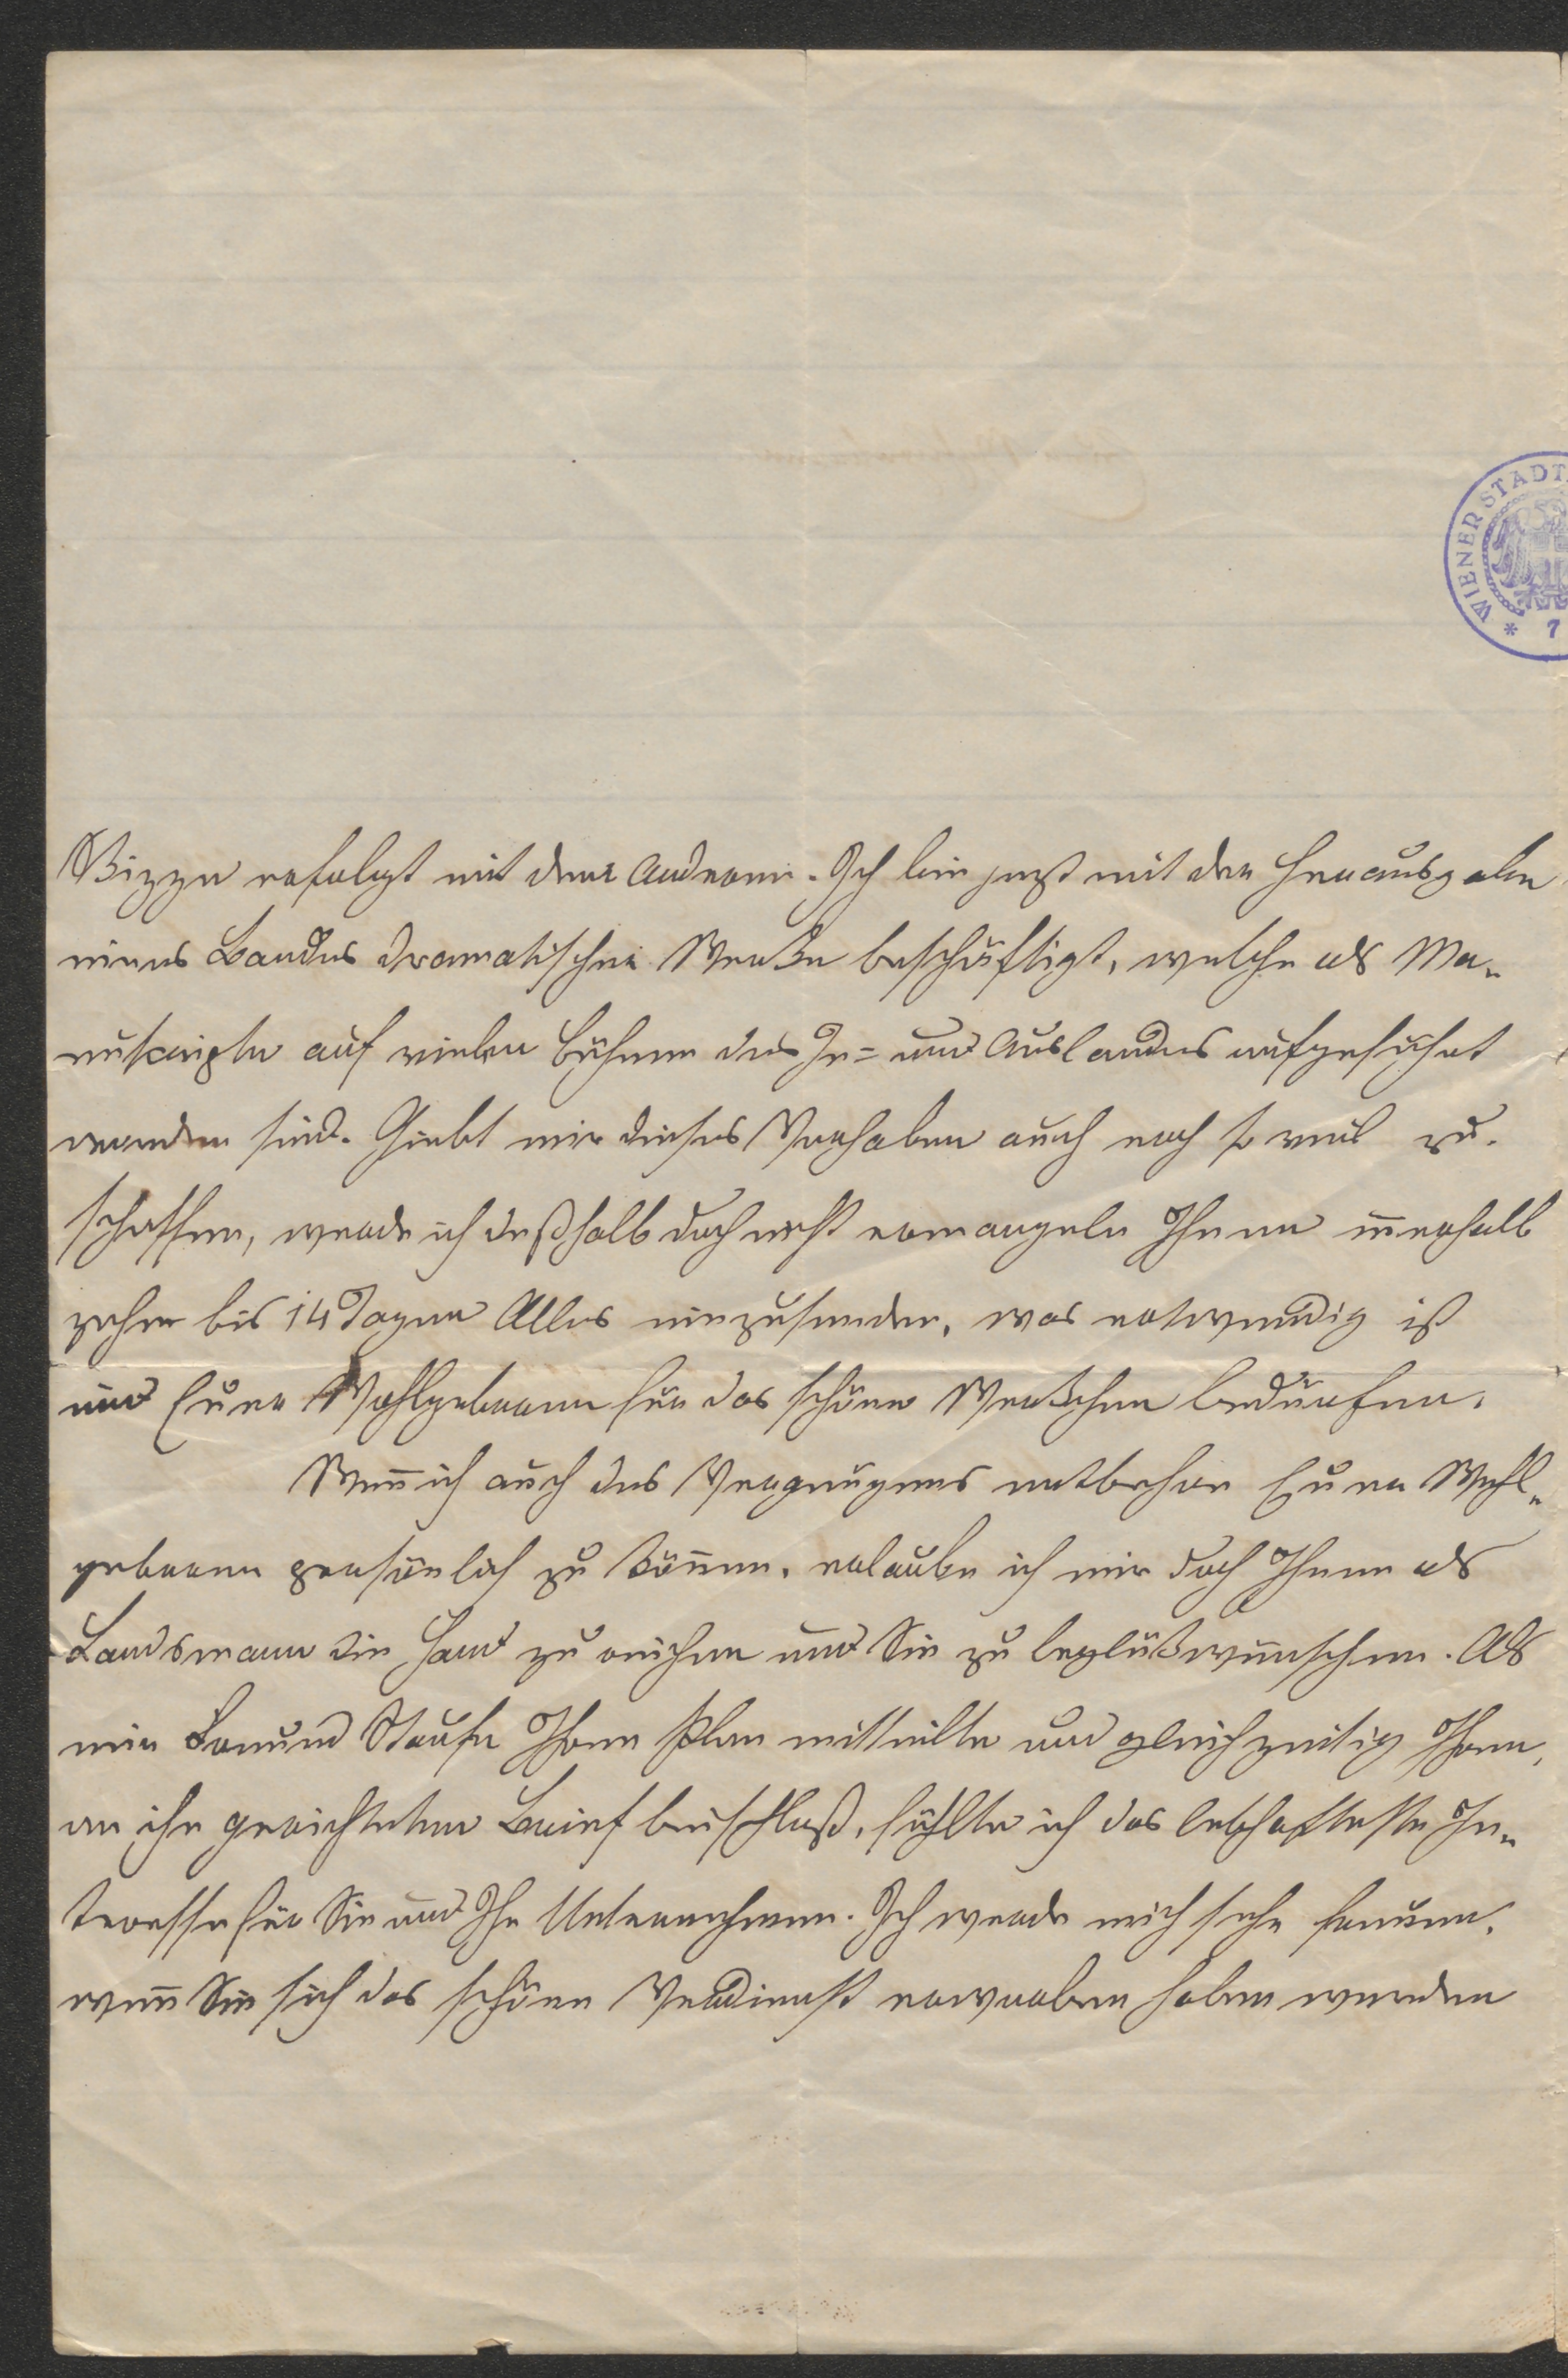 Skizze erfolgt mit dem anderen. Ich bin jetzt mit der Herausgabe
eines Bandes dramatischer Werke beschäftigt, welche als Ma-
nuskripte auf vielen Bühnen des In= und Auslandes aufgeführt
worden sind. Giebt mir dieses Vorhaben auch noch so viel zu
schaffen, werde ich deßhalb doch nicht ermangeln Ihnen innerhalb
zehn bis 14 Tagen Alles einzusenden, was notwendig ist
und Euer Wohlgeboren für das schöne Werkchen bedürfen.
Wenn ich auch das Vergnügens entbehre Euer Wohl-
geboren persönlich zu können, erlaube ich mir doch Ihnen als
Landsmann die Hand zu reichen und Sie zu beglückwünschen. Als
mein Freund Staufe Ihren Plan mitteilte und gleichzeitig Ihren,
an ihn gerichteten Brief beischloß, fühlte ich das lebhafteste In-
teresse für Sie und Ihr Unternehmen. Ich werde mich sehr freuen,
wenn Sie sich das schöne Verdienst erworben haben werden
WIENER STADT
* 7